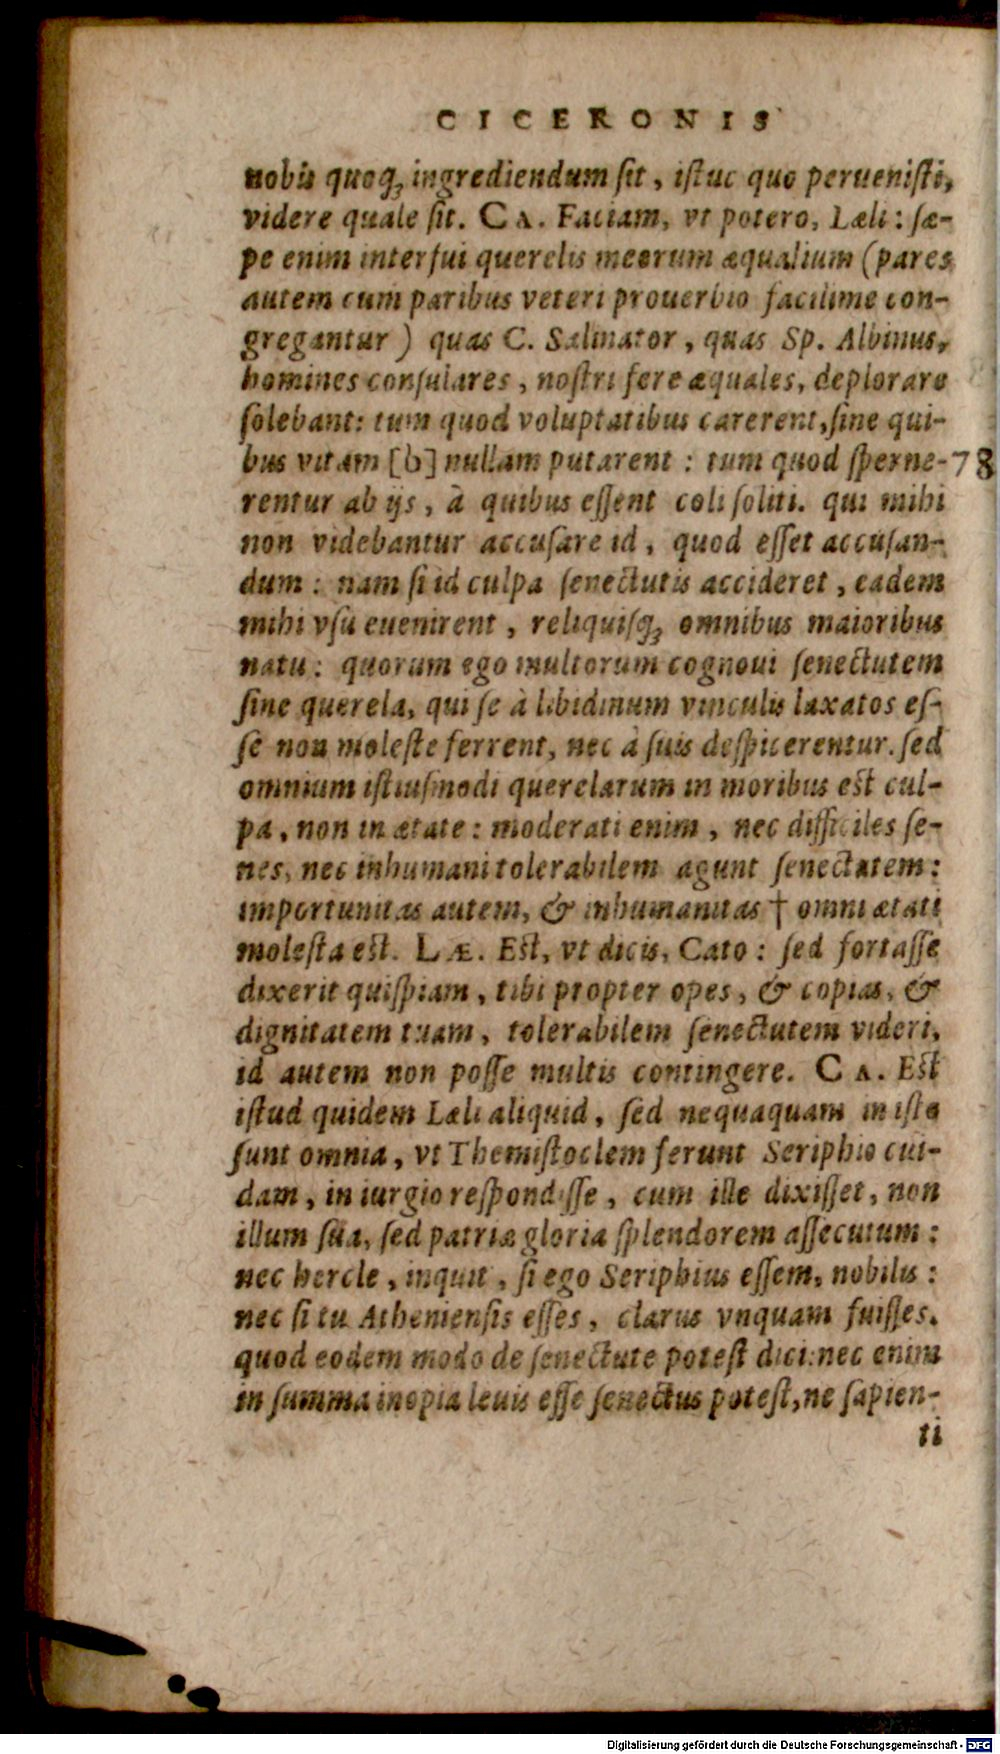 CICERONIS
nobis quoq; ingrediendum ſit, iſtuc quo perueniſti,
videre quale ſit. CA. Faciam, vt potero, Læli: ſæ-
pe enim interfui querelis meorum æqualium (pares
autem cum paribus veteri prouerbio facilime con-
gregantur) quas C. Salinator, quas Sp. Albinus,
homines conſulares, noſtri fere æquales, deplorare
ſolebant: tum quod voluptatibus carerent, ſine qui-
bus vitam [b] nullam putarent: tum quod ſperne- 78
rentur ab ijs, à quibus eſſent coli ſoliti. qui mihi
non videbantur accuſare id, quod eſſet accuſan-
dum: nam ſi id culpa ſenectutis accideret, eadem
mihi vſu euenirent, reliquiſq; omnibus maioribus
natu: quorum ego multorum cognoui ſenectutem
ſine querela, qui ſe à libidinum vinculis laxatos eſ-
ſe non moleſte ferrent, nec à ſuis deſpicerentur. ſed
omnium iſtiuſmodi querelarum in moribus eſt cul-
pa, non in ætate: moderati enim, nec difficiles ſe-
nes, nec inhumani tolerabilem agunt ſenectutem:
importunitas autem, & inhumanitas † omni ætati
moleſta eſt. LÆ. Eſt, vt dicis, Cato: ſed fortaſſe
dixerit quiſpiam, tibi propter opes, & copias, &
dignitatem tuam, tolerabilem ſenectutem videri,
id autem non poſſe multis contingere. CA. Eſt
iſtud quidem Læli aliquid, ſed nequaquam in iſto
ſunt omnia, vt Themiſtoclem ferunt Seriphio cui-
dam, in iurgio reſpondiſſe, cum ille dixiſſet, non
illum ſua, ſed patriæ gloria ſplendorem aſſecutum:
nec hercle, inquit, ſi ego Seriphius eſſem, nobilis:
nec ſi tu Athenienſis eſſes, clarus vnquam fuiſſes.
quod eodem modo de ſenectute poteſt dici: nec enim
in ſumma inopia leuis eſſe ſenectus poteſt, ne ſapien-
ti
Digitalisierung gefördert durch die Deutsche Forschungsgemeinschaft - DFG